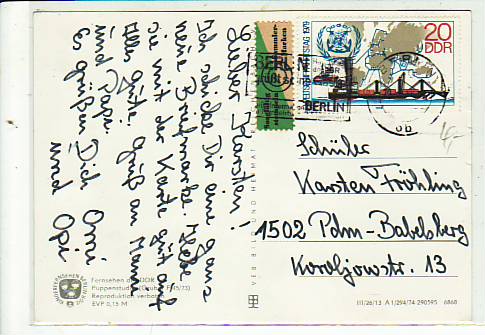 Lieber Karsten!
Ich schicke Dir eine ganz
neue Briefmarke. Hebe
sie mit der Karte gut auf
Alles Gute. Gruß an Mama
und Papa.
Es grüßen Dich Omi
und Opi
Fernsehen der DDR
Puppenstudio
Reproduktion verboten
EVP 0,15 M
VEB BILD UND HEIMAT
III/26/13 A 1/294/74 290595 6868
1979
20
DDR
BERLIN
BERLIN
Schüler
Karsten Fröhling
1502 Pdm-Babelsberg
Koroljowstr. 13